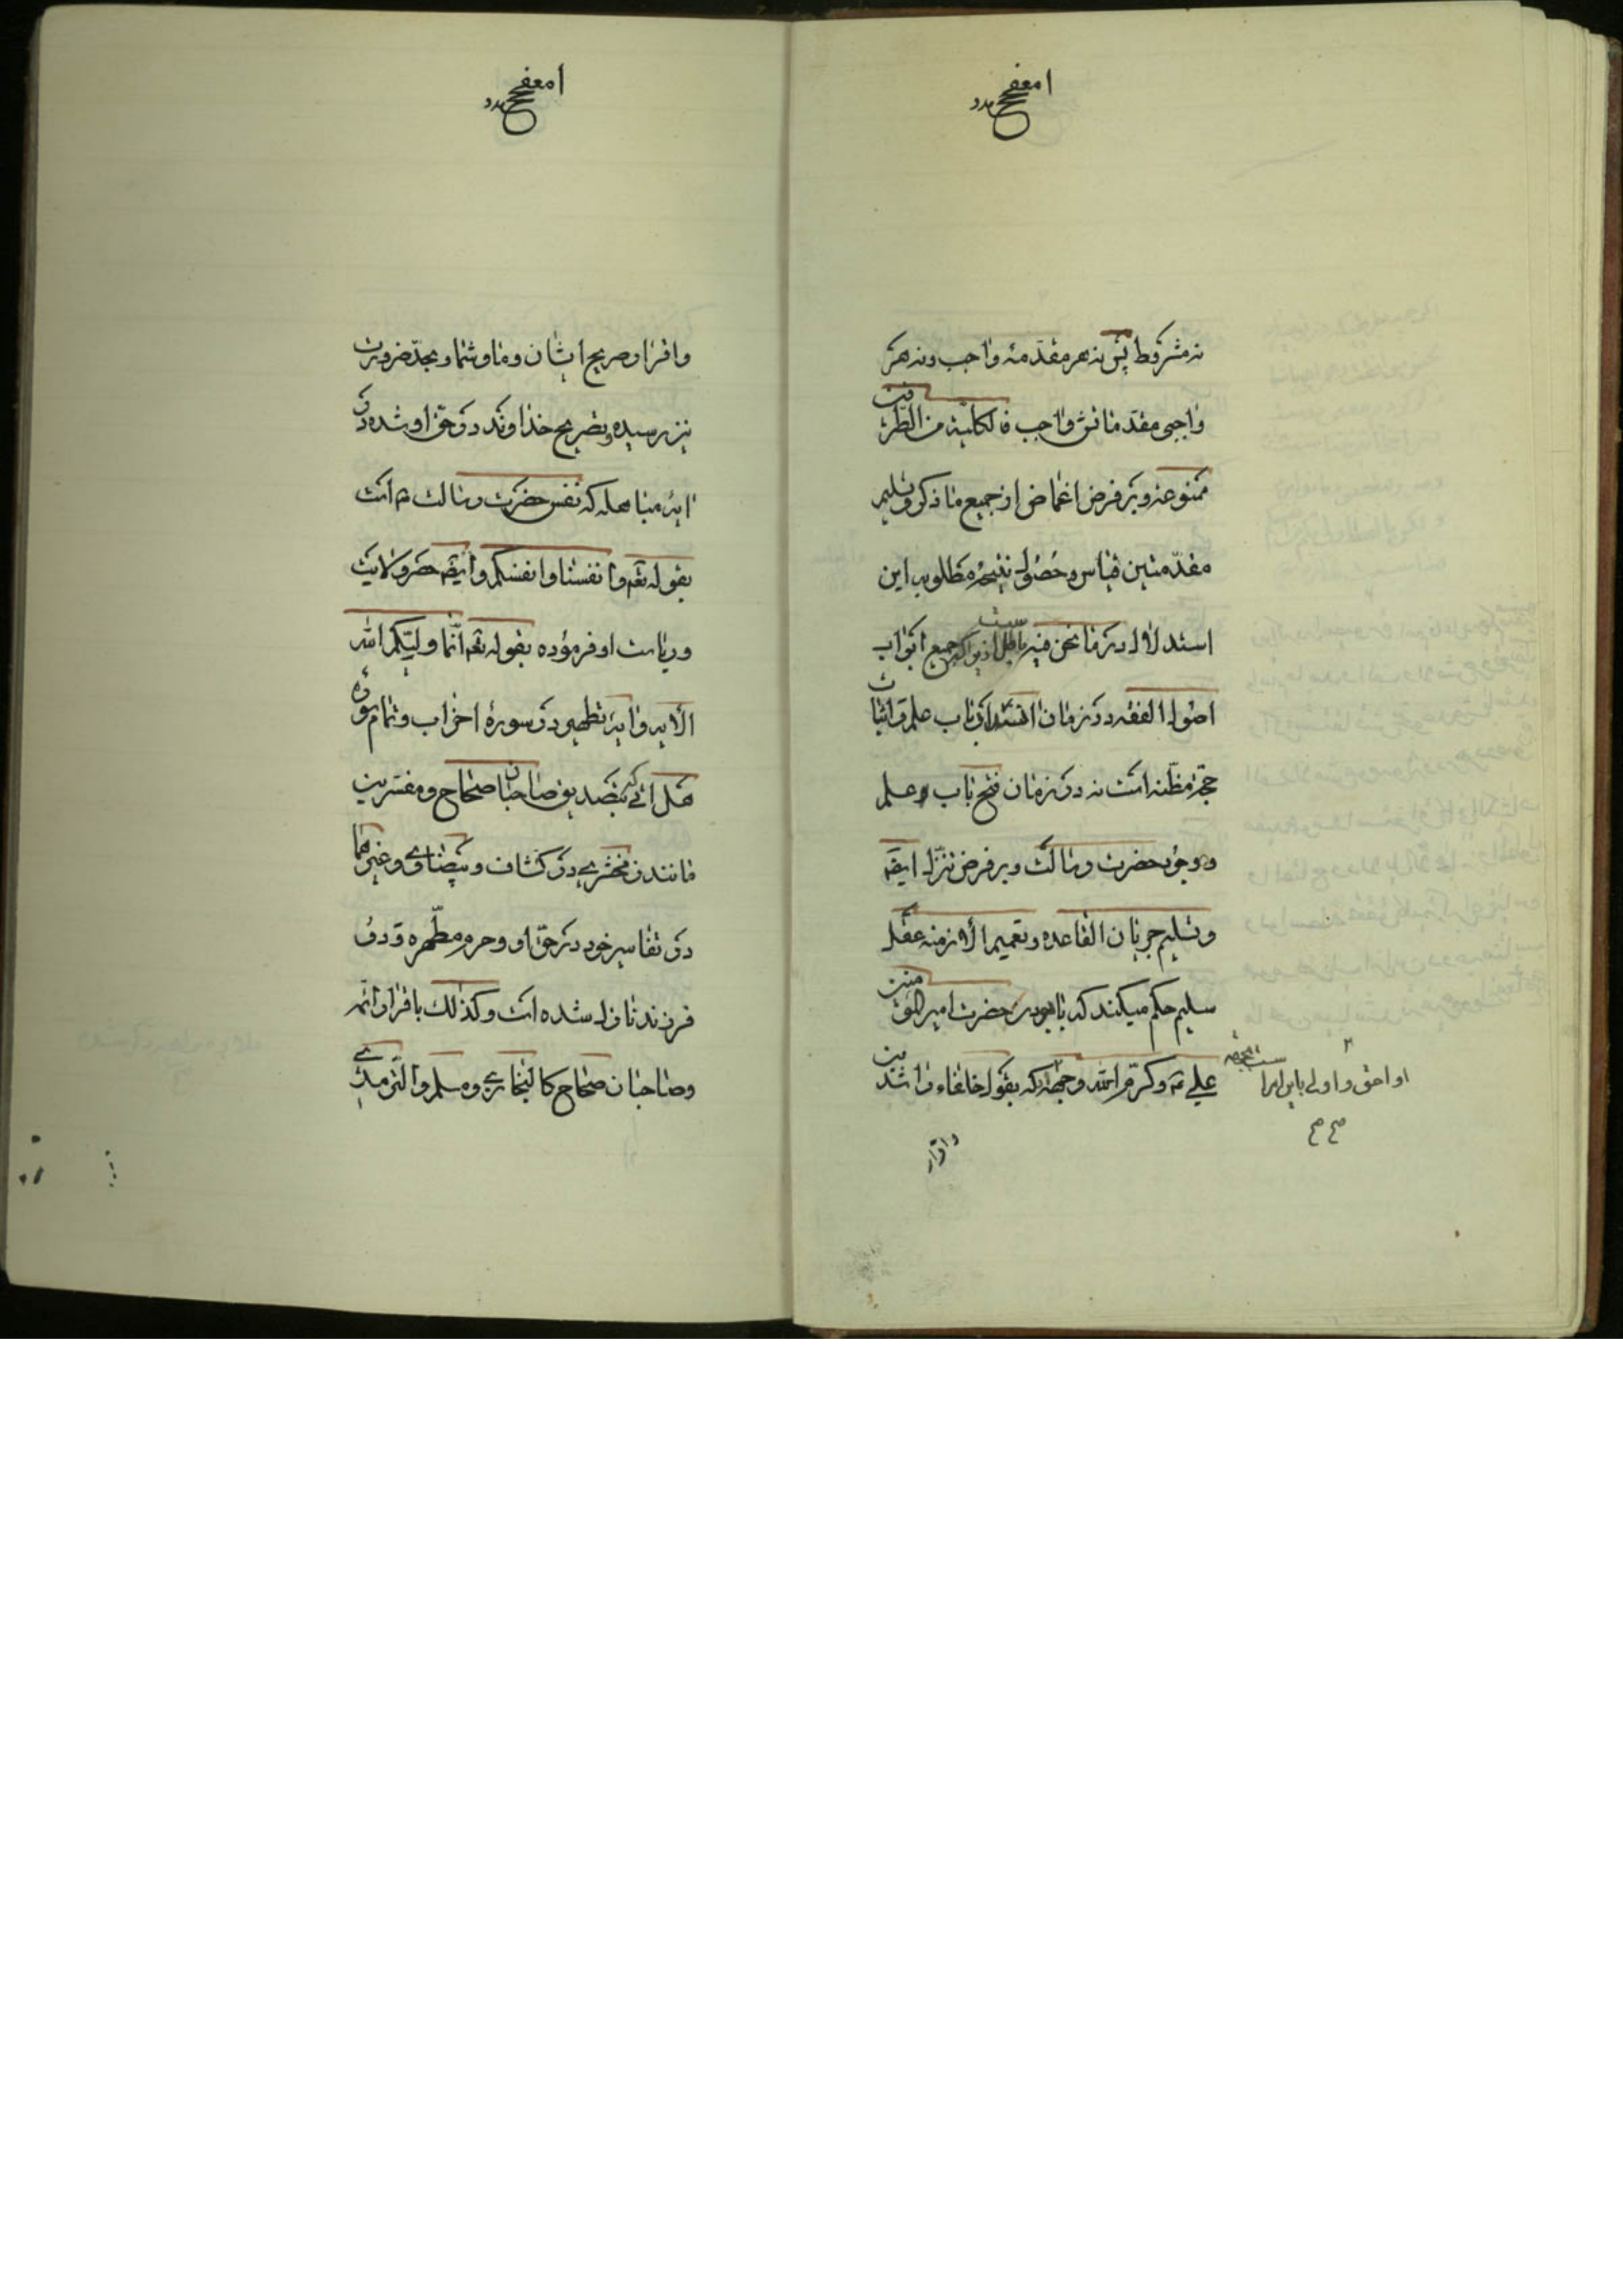 نه مشروط پس نه هر مقدمه واجب و نه هر
واجبی مقدماتش واجب فالکلیة من الطرفین
ممنوعه و بر فرض اغماض از جمیع ما ذکر و تسلیم
مقدمتین قیاس و حصول نتیجه مطلوب این
استدلال در ما نحن فیه باطل است زیراکه جمیع ابواب
اصول الفقه در زمان انسداد باب علم و اثبات
حجة مظنه است نه در زمان فتح باب علم
و وجود حضرت رسالت و بر فرض تنزل ایضا
و تسلیم جریان القاعده و تعمیم الأزمنه عقل
سلیم حکم میکند که با بودن حضرت امیرالمؤمنین
علی ع و کرم الله وجهه که بقول خلفاء راشدین
او احق و اولی باین امر است
صح صح
و اقرار
و اقرار صریح ایشان و ما و شما و بحد ضرورت
نیز رسیده و بتصریح خداوند در حق او شده در
ایه مباهله که نفس حضرت رسالت ص است
بقوله تعه و انفسنا و انفسکم و ایضه حصر ولایت
و ریاست او فرموده بقوله تعه انّما ولیّکم الله
الأیه و ایه تطهیر در سورهٔ احزاب و تمام سورهٔ
هل اتی که بتصدیق صاحبان صحاح و مفسرین
مانند زمخشری در کشاف و بیضاوی و غیرهما
در تفاسیر خود در حق او و حرم مطهره و دو
فرزندش نازل شده است و کذلک باقرار ائمه
و صاحبان صحاح کالبخاری و مسلم و الترمذی